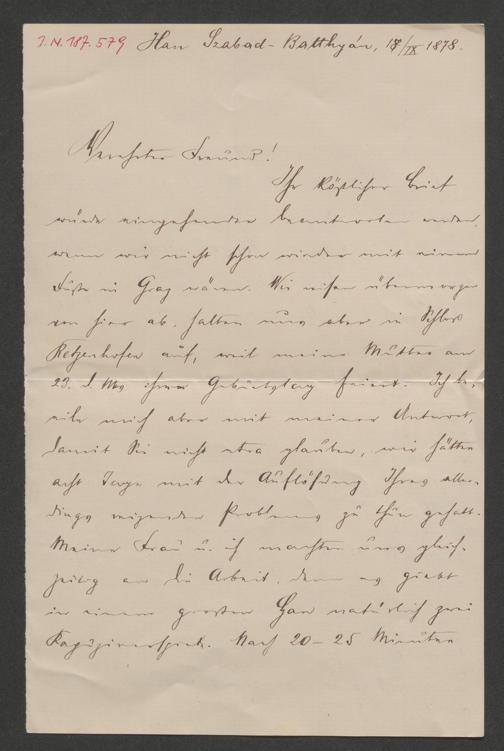 I. N. 187.579 Han Szabad-Batthyán, 18/IX 1878.
Verehrter Freund!
Ihr köstlicher Brief
würde eingehender beantwortet werden,
wenn wir nicht schon wieder mit einem
Fuße in Graz wären. Wir reisen übermorgen
von hier ab, halten uns aber in Schloß
Retzenhofen auf, weil meine Mutter am
23. d. Mts ihren Geburtstag feiert. Ich be-
eile mich aber mit meiner Antwort,
damit Sie nicht etwa glauben, wir hätten
acht Tage mit der Auflösung Ihres aller-
dings reizenden Problems zu thun gehabt.
Meine Frau u. ich machten uns gleich-
zeitig an die Arbeit, denn es giebt
in einem großen Han natürlich zwei
Nach 20-25 Minuten